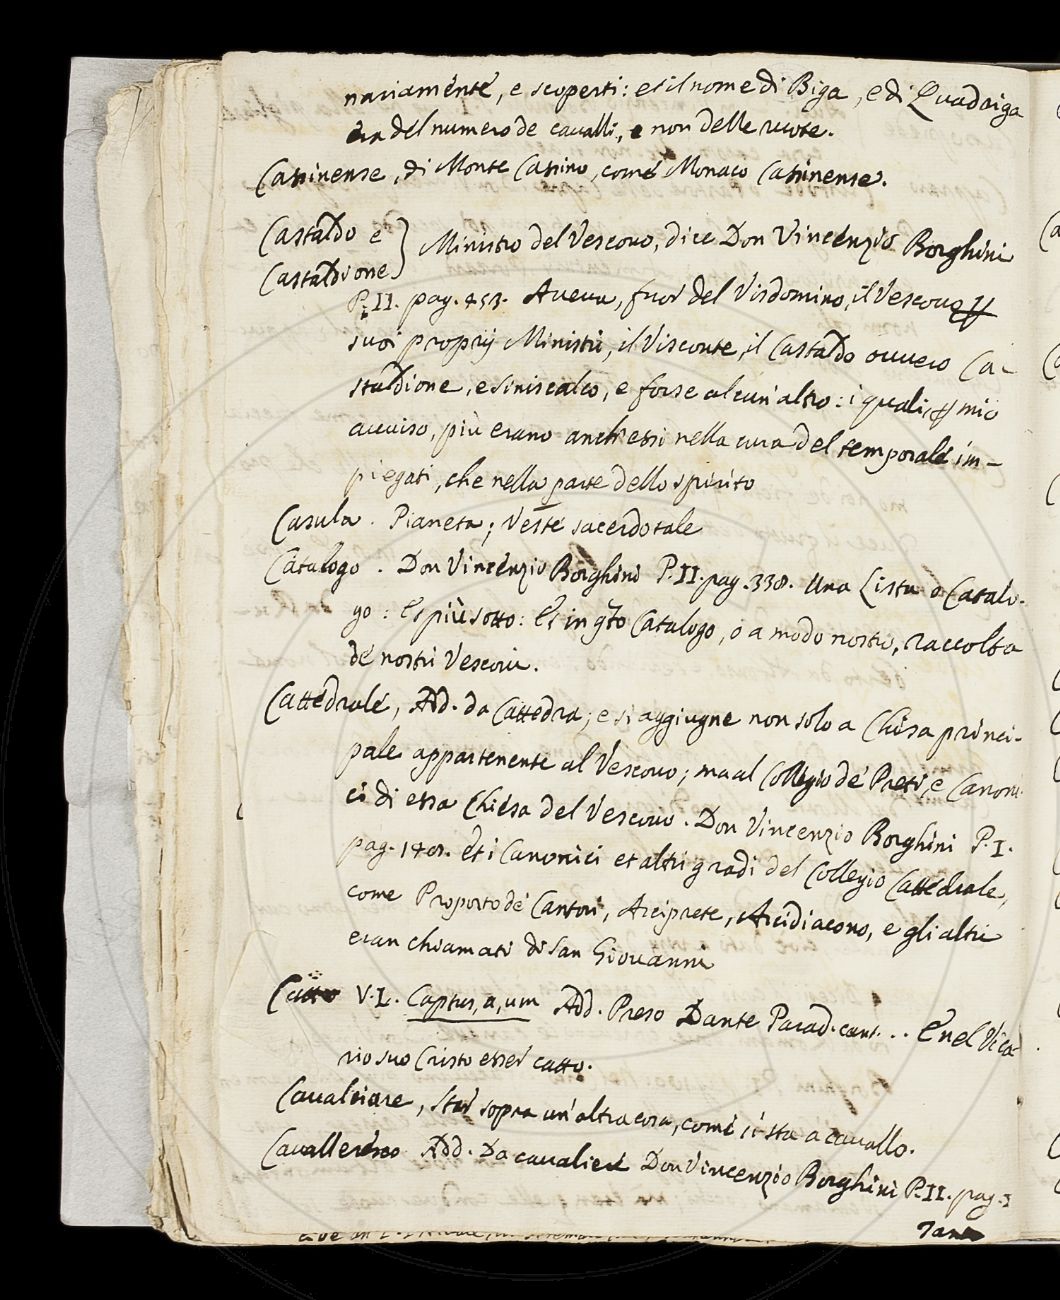 nariamente, e scoperti: et il nome di Biga, e di Quadriga
era del numero de cavalli, e non delle ruote.
Casinense, di Monte Casino, come Monaco Casinense.
Castaldo e
Castaldione } Ministro del Vescovo, dice Don Vincenzio Borghini
P. II. pag. 453. Aveva, fuor del Visdomino, il Vescovo
suoi proprij Ministri, il Visconte, il Castaldo ovvero Ca-
staldione, e siniscalco, e forse alcun'altro: i quali, ꝑ mio
avviso, più erano anch'essi nella cura del temporale im-
piegati, che nella parte dello spirito
Casula. Pianeta; Veste sacerdotale
Catalogo. Don Vincenzio Borghini P. II. pag. 338. Una Lista o Catalo-
go: E più sotto: E in q̃to Catalogo, o a modo nostro, raccolta
de' nostri Vescovi.
Cattedrale, Add. da Cattedra; e si aggiugne non solo a Chiesa princi-
pale appartenente al Vescovo; ma al Collegio de' Preti, e Canoni-
ci di essa Chiesa del Vescovo. Don Vincenzio Borghini P. I.
pag. Et i Canonici et altri gradi del Collegio Cattedrale,
come Proposto de' Cantori, Arciprete, Arcidiacono, e gli altri
eran chiamati di San Giovanni
Catto V. L. Captus, a, um Add. Preso Dante Parad. cant. .. E nel Vica-
rio suo Cristo esser catto.
Cavalciare, Star sopra un'altra cosa, come si sta a cavallo.
Cavalleresco Add. Da cavaliere Don Vincenzio Borghini P. II. pag.